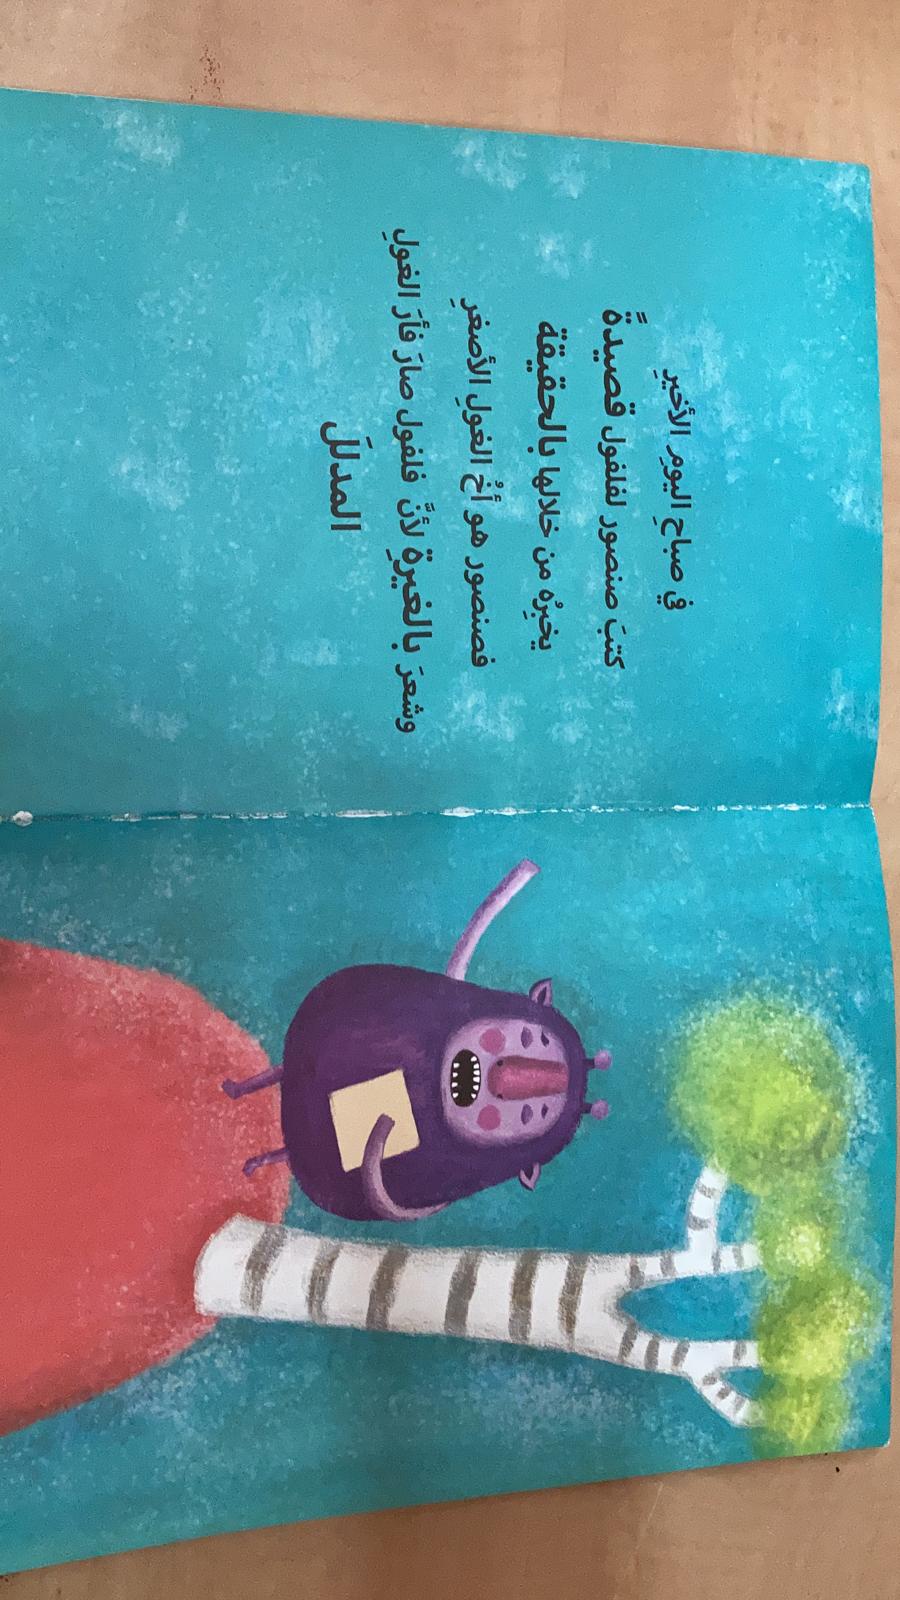 في صباحِ اليومِ الأخيرِ
كتبَ صنصور لفلفول قصيدةً
يخبِرُه من خلالها بالحقيقة
فصنصور هو أخُ الغولِ الأصغرِ
وشعرَ بالغيرةِ لأنّ فلفول صارَ فأرَ الغولِ
المدللَ